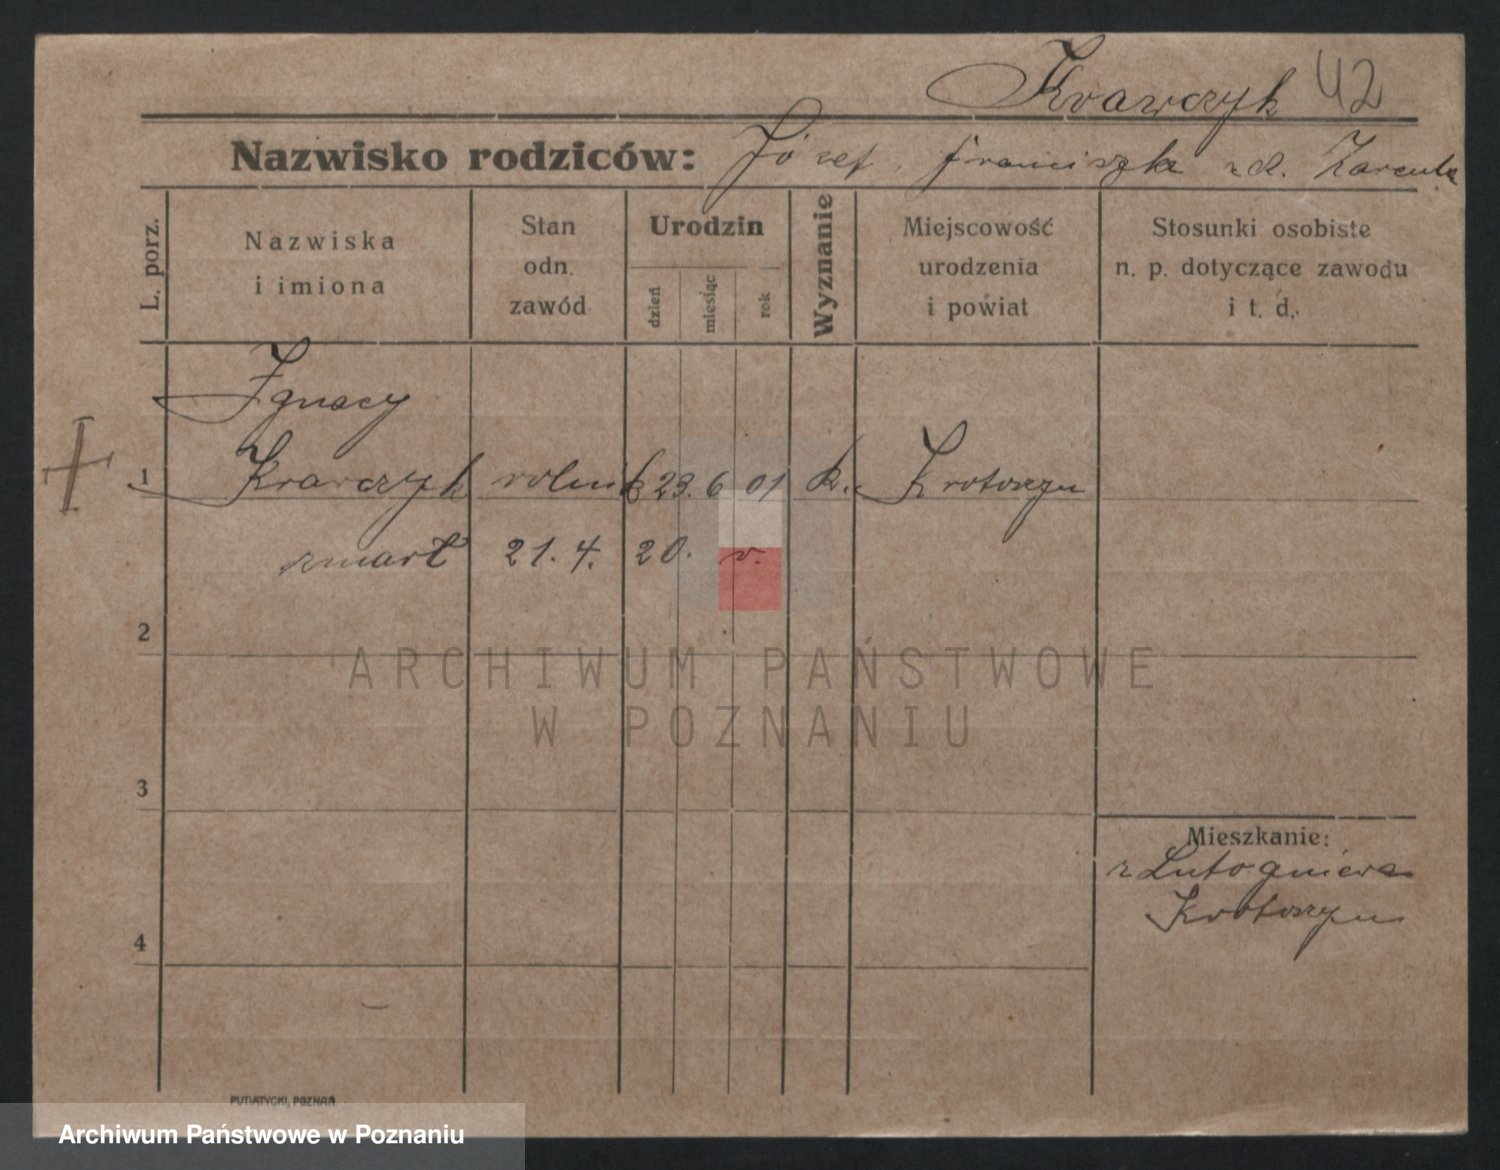 Krawczyk 42
Nazwisko rodziców: Józef, Franciszka zd. Zaremba
L. porz.
Nazwiska i imiona
Stan odn. zawód
Urodzin
dzień
miesiąc
rok
Wyznanie
Miejscowość urodzenia i powiat
Stosunki osobiste n. p. dotyczące zawodu i t. d.
Ignacy
1 Krawczyk rolnik 23. 6 01 k. Krotoszyn
zmarł 21. 4. 20. r.
2
ARCHIWUM PAŃSTWOWE
W POZNANIU
3
Mieszkanie:
z Lutogniewa
Krotoszyn
4
PUTIATYCKI, POZNAŃ
Archiwum Państwowe w Poznaniu